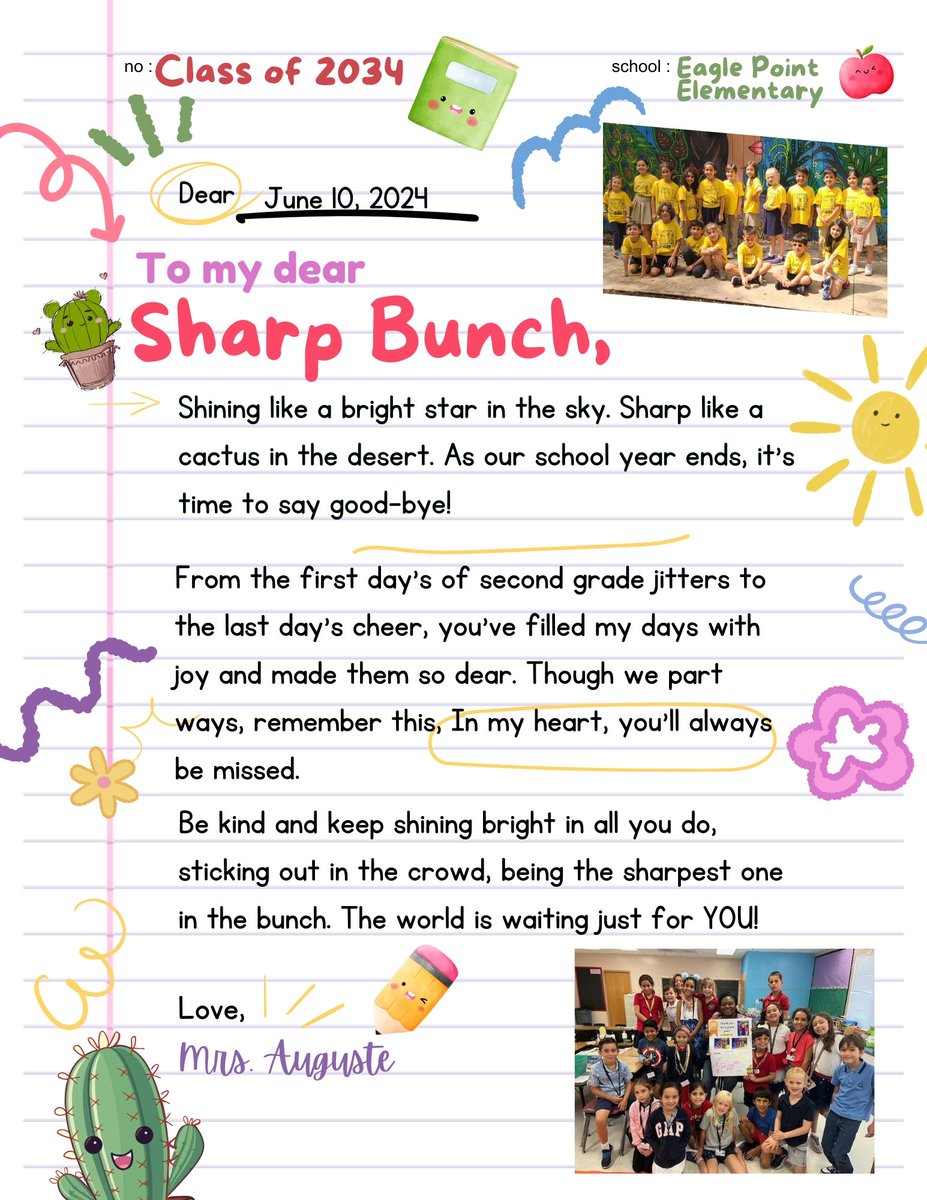 no : Class of 2034
school : Eagle Point
Elementary
Dear June 10, 2024
To my dear
Sharp Bunch,
Shining like a bright star in the sky. Sharp like a
cactus in the desert. As our school year ends, it's
time to say good-bye!
From the first day's of second grade jitters to
the last day's cheer, you've filled my days with
joy and made them so dear. Though we part
ways, remember this, In my heart, you'll always
be missed.
Be kind and keep shining bright in all you do,
sticking out in the crowd, being the sharpest one
in the bunch. The world is waiting just for YOU!
Love,
Mrs. Auguste
GAP